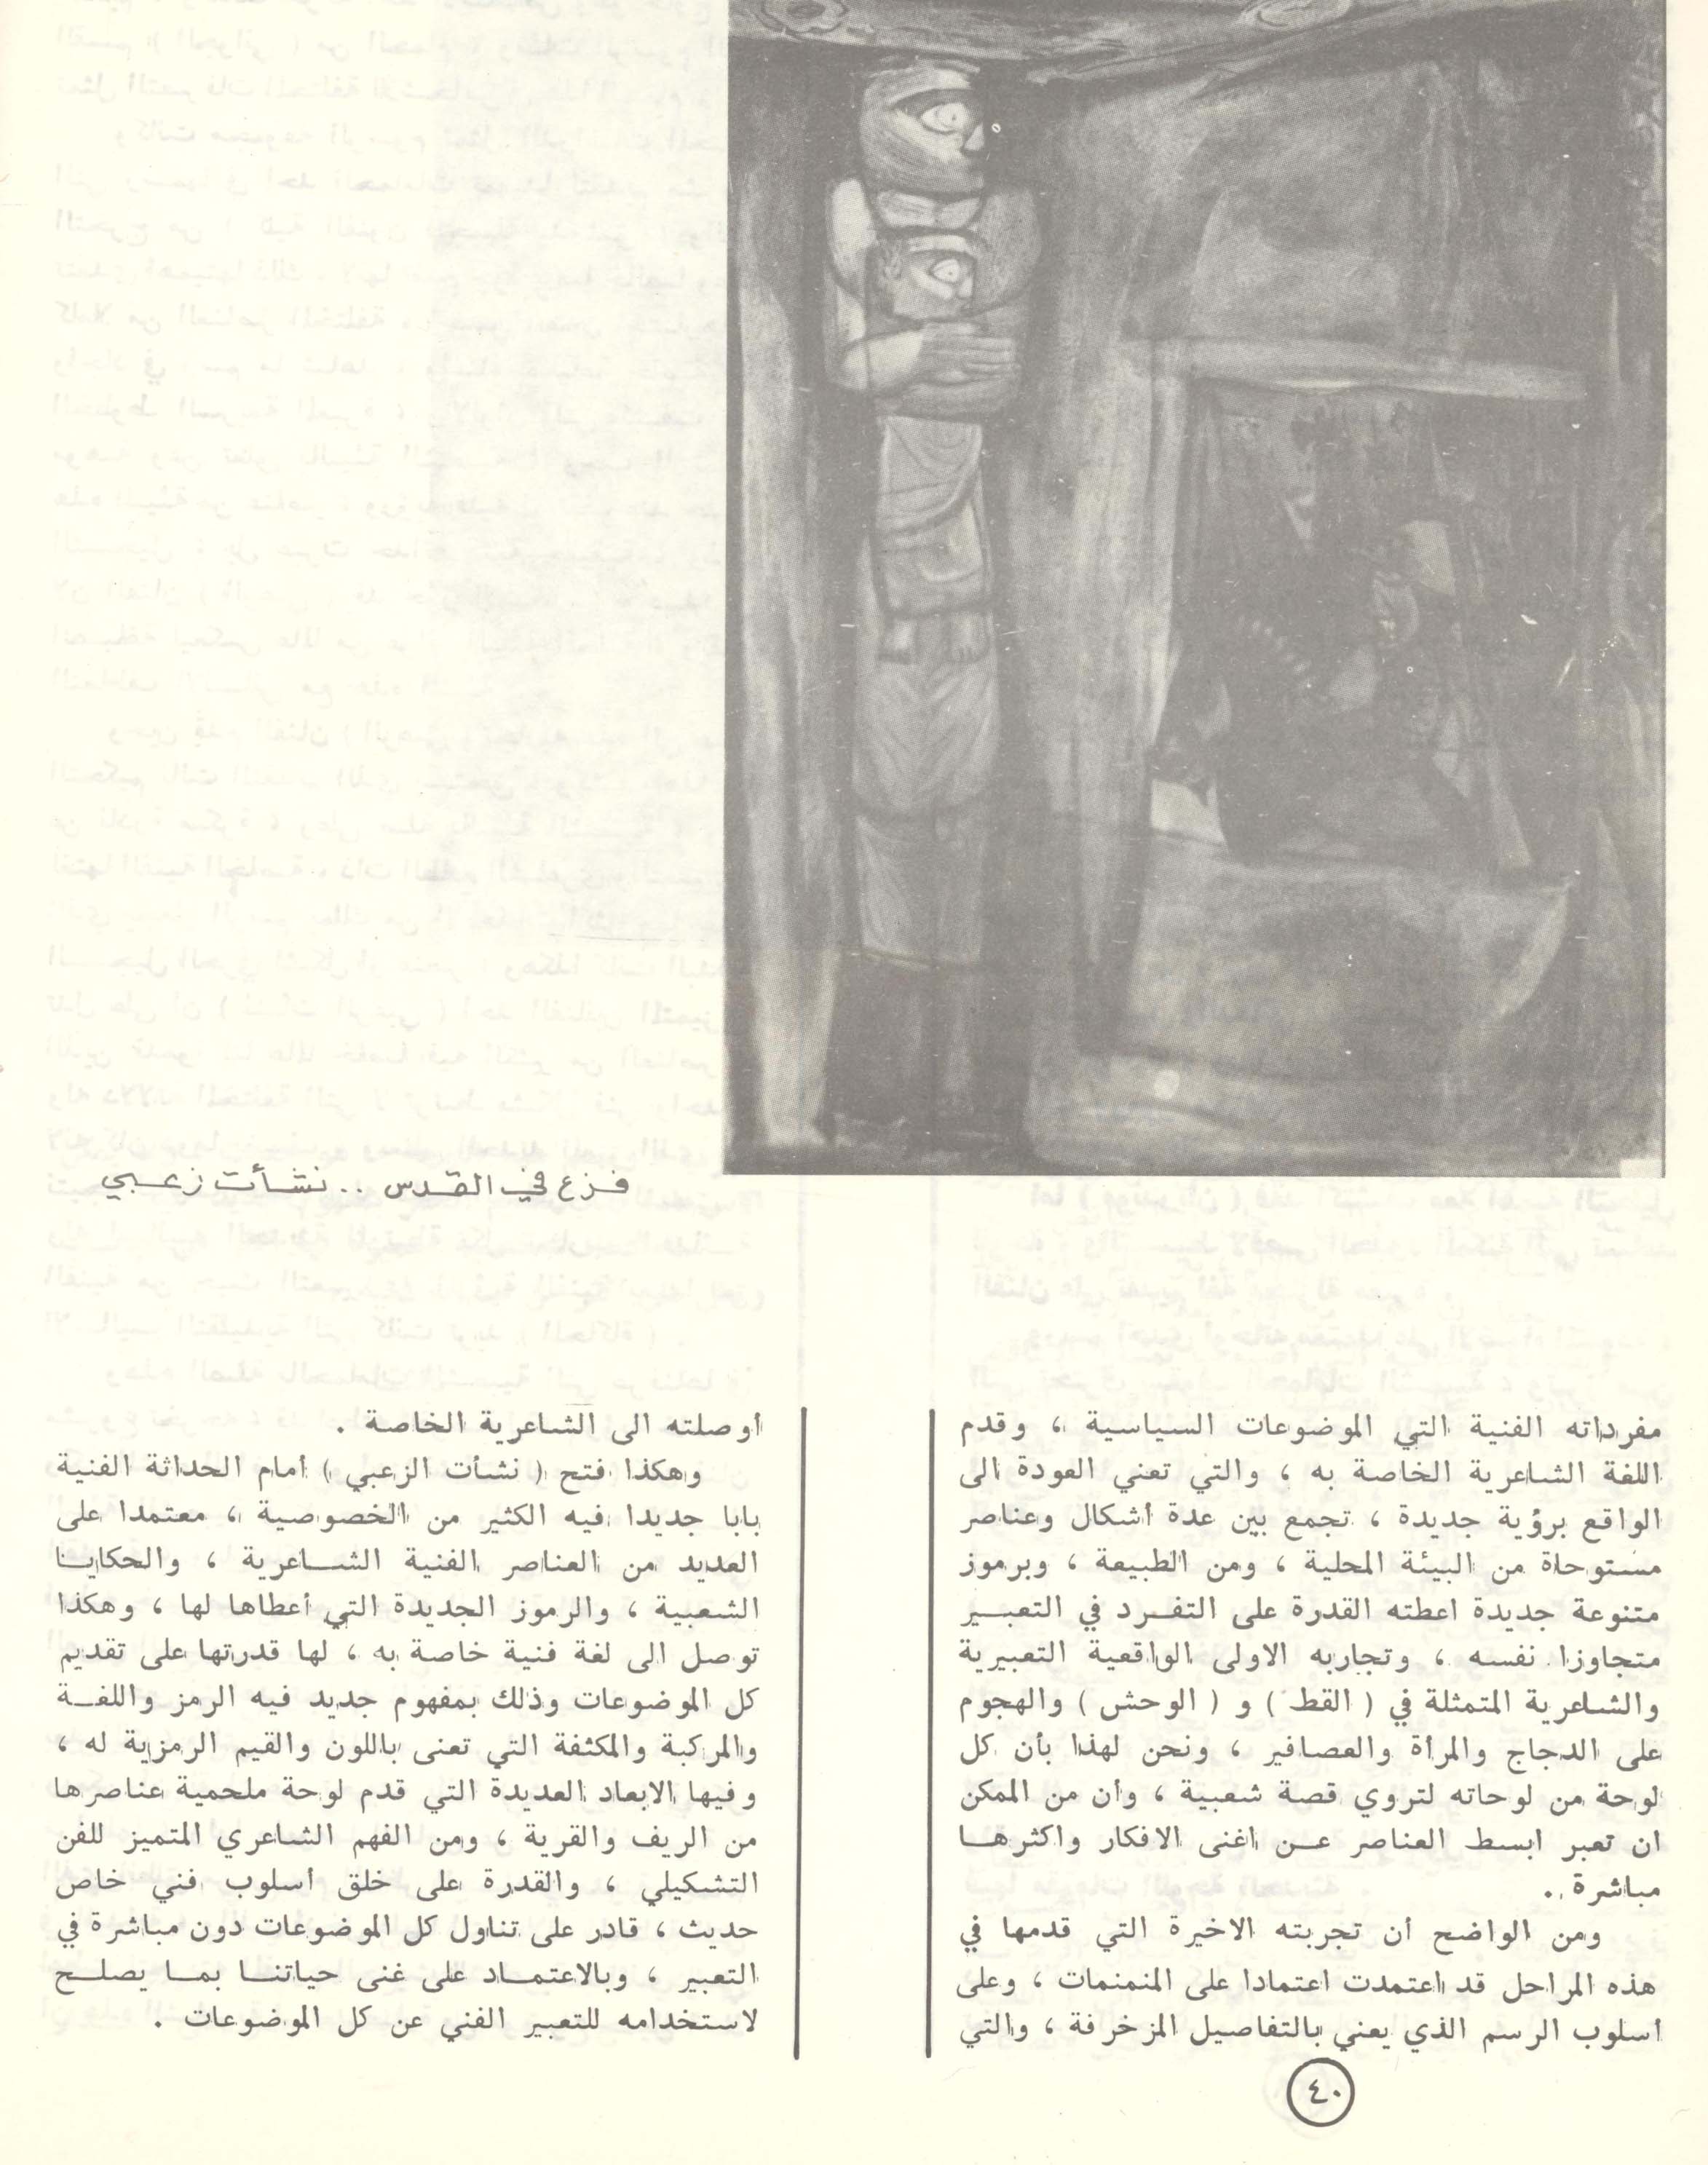 فزع في القدس .. نشأت زعبي
مفرداته الفنية التي الموضوعات السياسية ، وقدم
اللغة الشاعرية الخاصة به ، والتي تعني العودة الى
الواقع برؤية جديدة ، تجمع بين عدة أشكال وعناصر
مستوحاة من البيئة المحلية ، ومن الطبيعة ، وبرموز
متنوعة جديدة اعطته القدرة على التفرد في التعبير
متجاوزا نفسه ، وتجاربه الاولى الواقعية التعبيرية
والشاعرية المتمثلة في ( القط ) و ( الوحش ) والهجوم
على الدجاج والمرأة والعصافير ، ونحن لهذا بأن كل
لوحة من لوحاته لتروي قصة شعبية ، وان من الممكن
ان تعبر ابسط العناصر عن اغنى الافكار واكثرها
مباشرة ..
ومن الواضح أن تجربته الاخيرة التي قدمها في
هذه المراحل قد اعتمدت اعتمادا على المنمنمات ، وعلى
أسلوب الرسم الذي يعني بالتفاصيل المزخرفة ، والتي
أوصلته الى الشاعرية الخاصة .
وهكذا فتح ( نشأت الزعبي ) أمام الحداثة الفنية
بابا جديدا فيه الكثير من الخصوصية ، معتمدا على
العديد من العناصر الفنية الشاعرية ، والحكايا
الشعبية ، والرموز الجديدة التي أعطاها لها ، وهكذا
توصل الى لغة فنية خاصة به ، لها قدرتها على تقديم
كل الموضوعات وذلك بمفهوم جديد فيه الرمز واللغة
والمركبة والمكثفة التي تعنى باللون والقيم الرمزية له ،
وفيها الابعاد العديدة التي قدم لوحة ملحمية عناصرها
من الريف والقرية ، ومن الفهم الشاعري المتميز للفن
التشكيلي ، والقدرة على خلق أسلوب فني خاص
حديث ، قادر على تناول كل الموضوعات دون مباشرة في
التعبير ، وبالاعتماد على غنى حياتنا بما يصلح
لاستخدامه للتعبير الفني عن كل الموضوعات .
٤٠